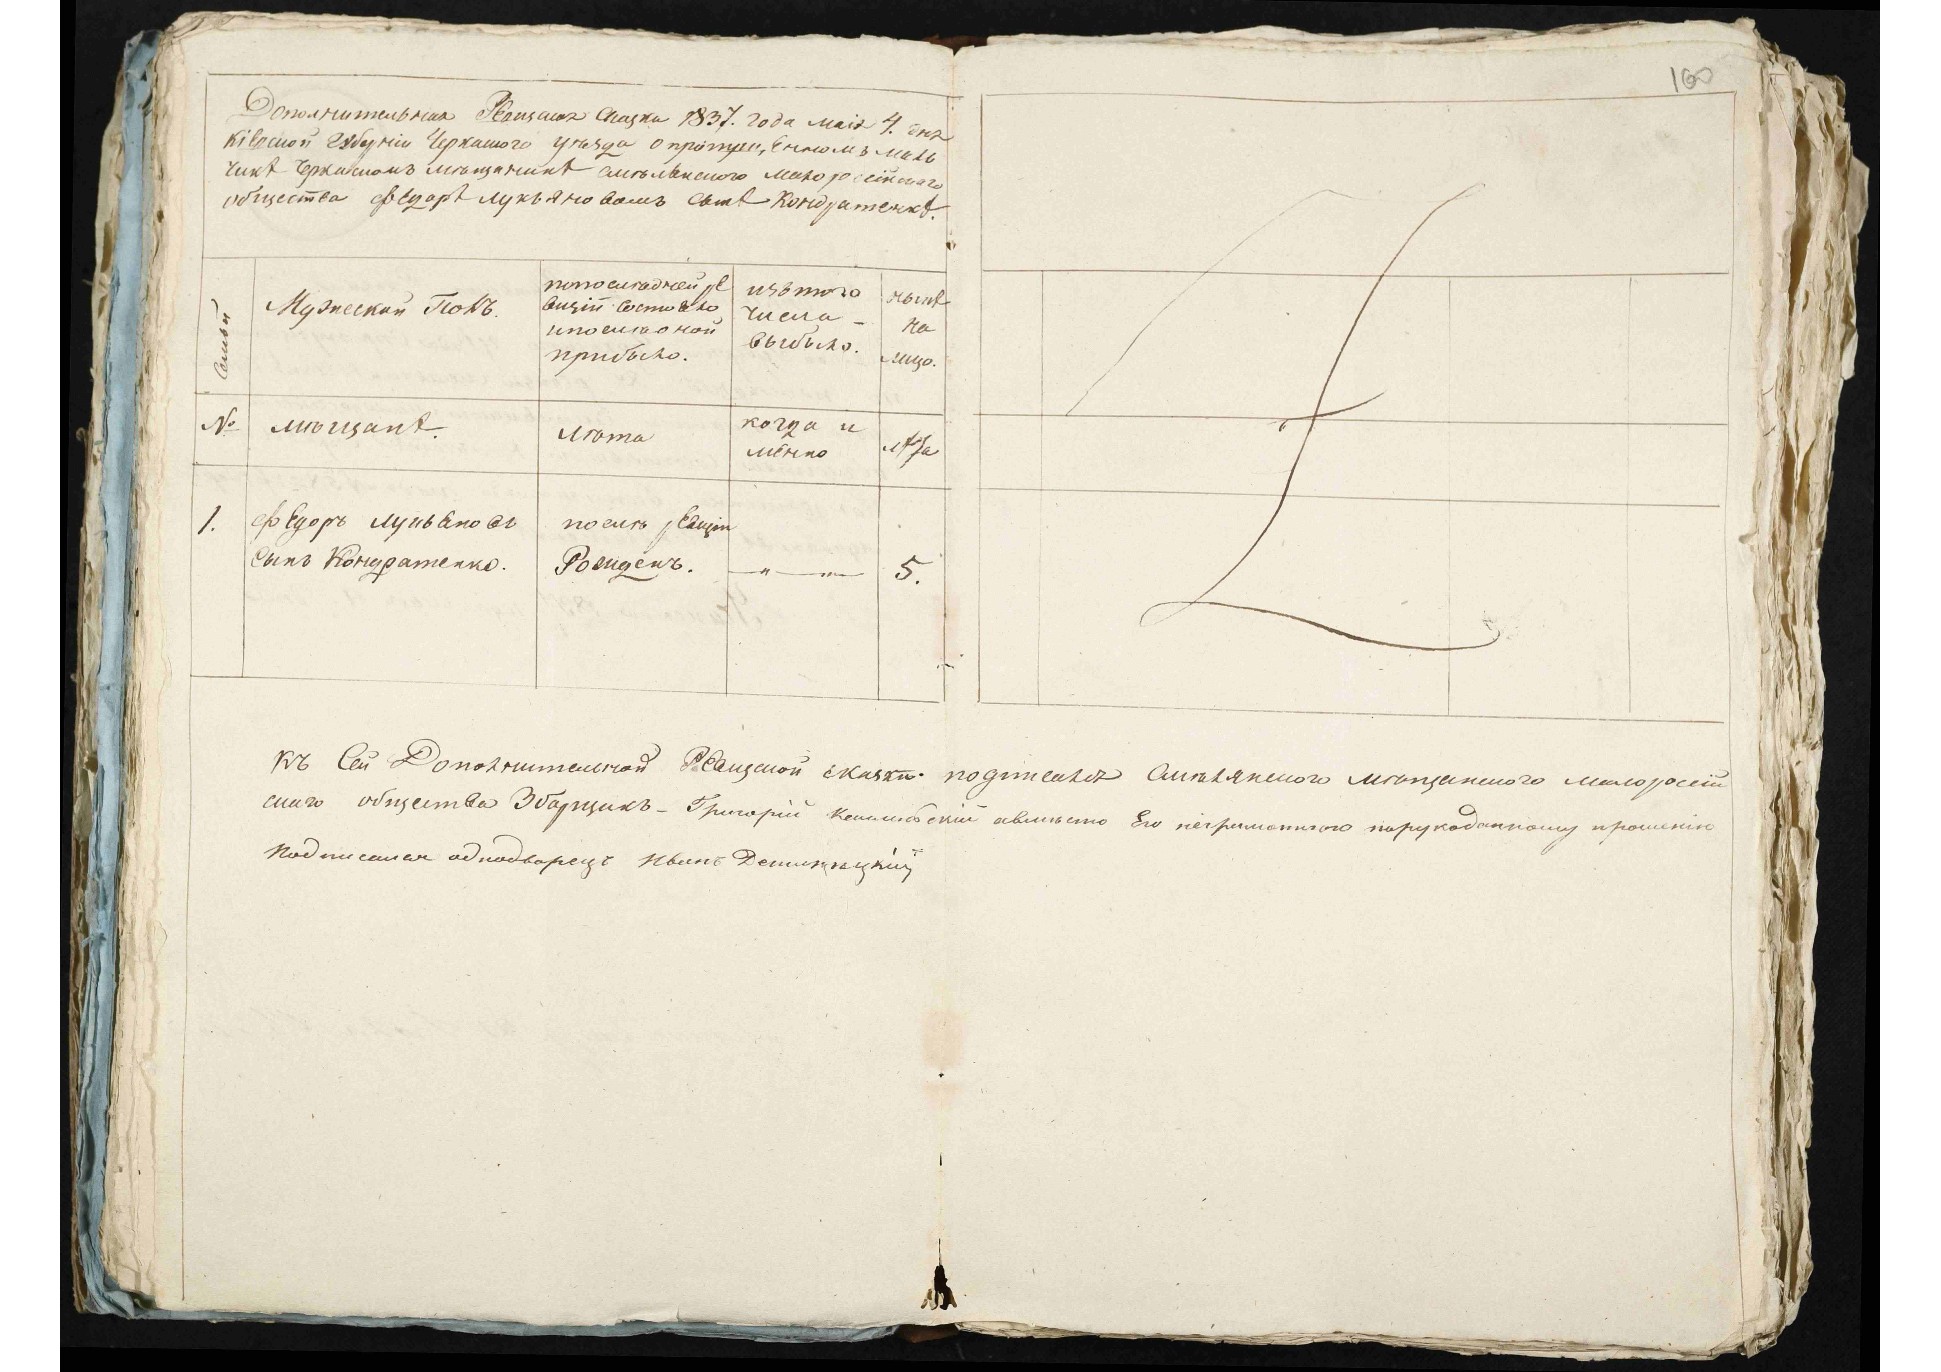 160
Дополнительная Ревизская Сказка 1837. года маія 4. дня
Кіевской Губерніи Черкаского уезда о
чике Черкаскомъ мещанине смелянского малоросійского
общества Федоре Лукьяновомъ сыне Кондратенке.
Семьи
Мужеский Полъ.
по последней ре
визіи состояло
и после оной
прибыло.
изъ того
числа
выбыло.
ныне
на
лицо.
№
мещане.
лета
когда и
менно
лета
1.
Федоръ Лукьяновъ
сынъ Кондратенко.
после ревизіи
Рожденъ.
5.
Къ Сей Дополнительной Ревизской сказки подписался Смелянского мещанского малоросій
скаго общества Зборщикъ - Григорій авместо Его неграмотного порукоданному прошенію
подписался однодворецъ Иванъ